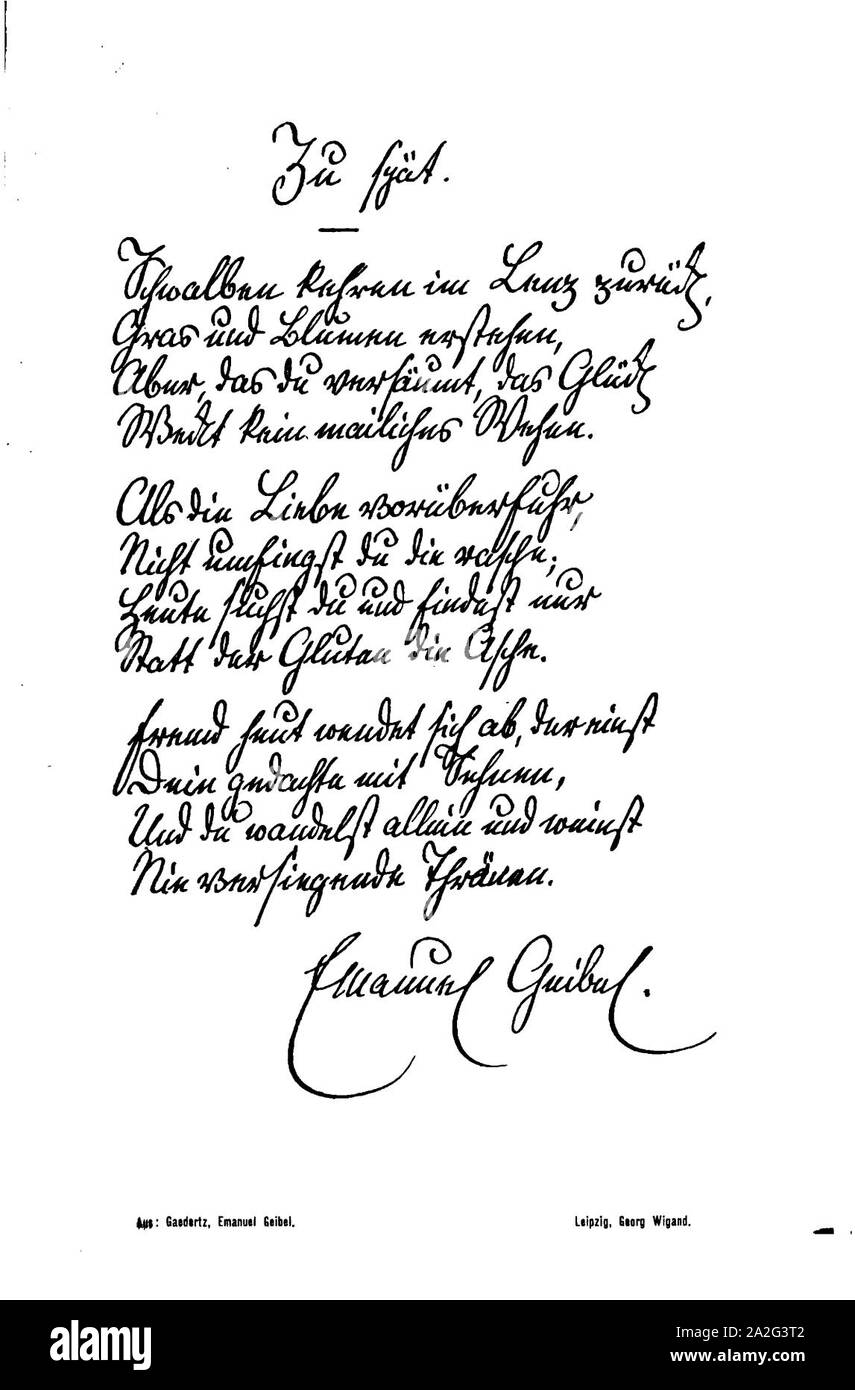 Zu spät.
Schwalben kehren im Lenz zurück,
Gras und Blumen erstehen,
Aber, das du versäumt, das Glück
Weckt kein mailiches Wehen.
Als die Liebe vorüberfuhr,
Nicht umfingst du die rasche;
Heute suchst du und findest nur
Statt der Gluten die Asche.
Fremd heut wendet sich ab, der einst
Dein gedachte mit Sehnen,
Und du wandelst allein und weinst
Nie versiegende Thränen.
Emanuel Geibel.
Aus: Gaedertz, Emanuel Geibel.
Leipzig, Georg Wigand.
alamy
Image ID: A2G3T2
www.alamy.com